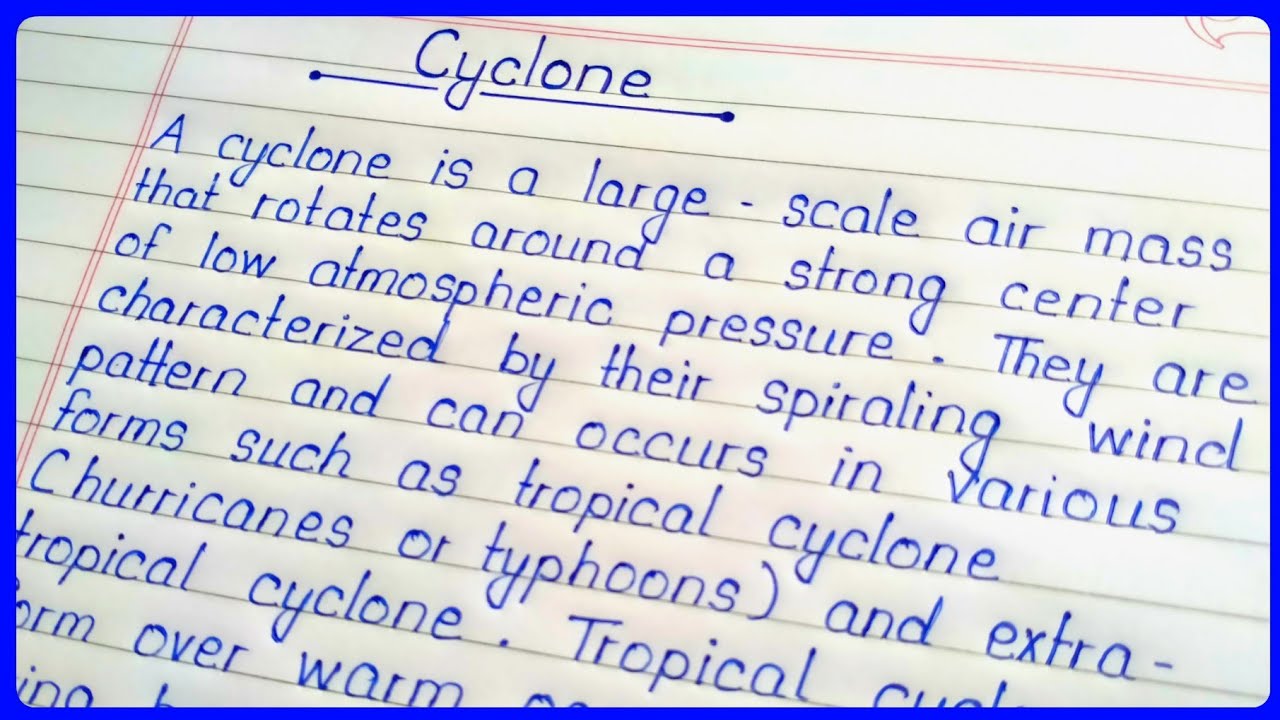 Cyclone
A cyclone is a large - scale air mass
that rotates around a strong center
of low atmospheric pressure. They are
characterized by their spiraling wind
pattern and can occurs in various
forms such as tropical cyclone
(hurricanes or typhoons) and extra-
tropical cyclone. Tropical
over warm